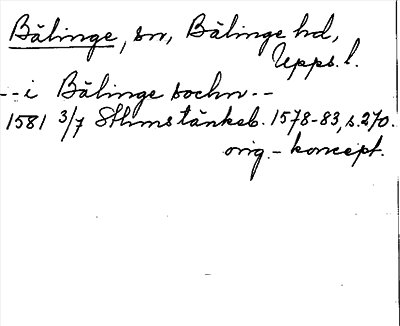 Bälinge, sn, Bälinge hd,
Upps. l.
-- i Bälinge sochn --
1581 3/7 Sthms tänkeb. 1578-83, s. 270.
orig. - koncept.